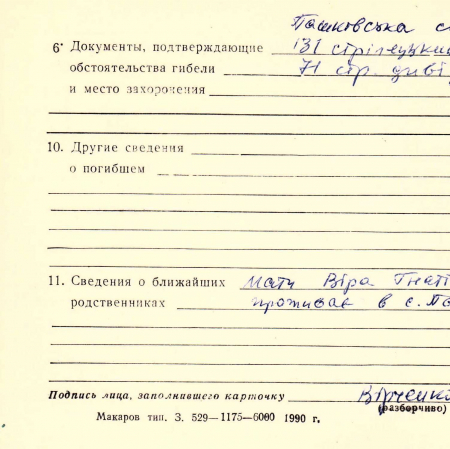 Пашковська с
6· Документы, подтверждающие 131 стрілецький
обстоятельства гибели 71 стр. диві
и место захоронения
10. Другие сведения
о погибшем
11. Сведения о ближайших Мати Віра Гнаті
родственниках проживає в с.
Подпись лица, заполнившего карточку
(разборчиво)
Макаров тип. З. 529—1175—6000 1990 г.